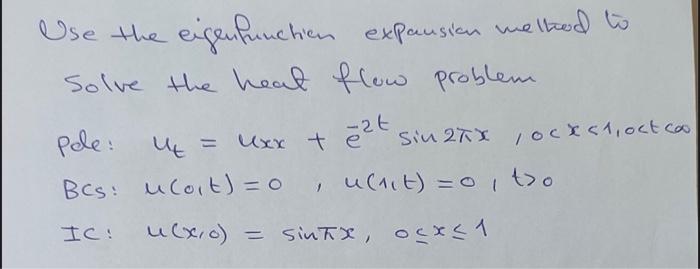 Use the eigenfunction expansion method to
Solve the heat flow problem
pde: u_t = u_xx + e^{-2t} sin 2πx , 0<x<1, 0<t<∞
BCs: u(0,t) = 0 , u(1,t) = 0 , t>0
IC: u(x,0) = sin πx, 0≤x≤1